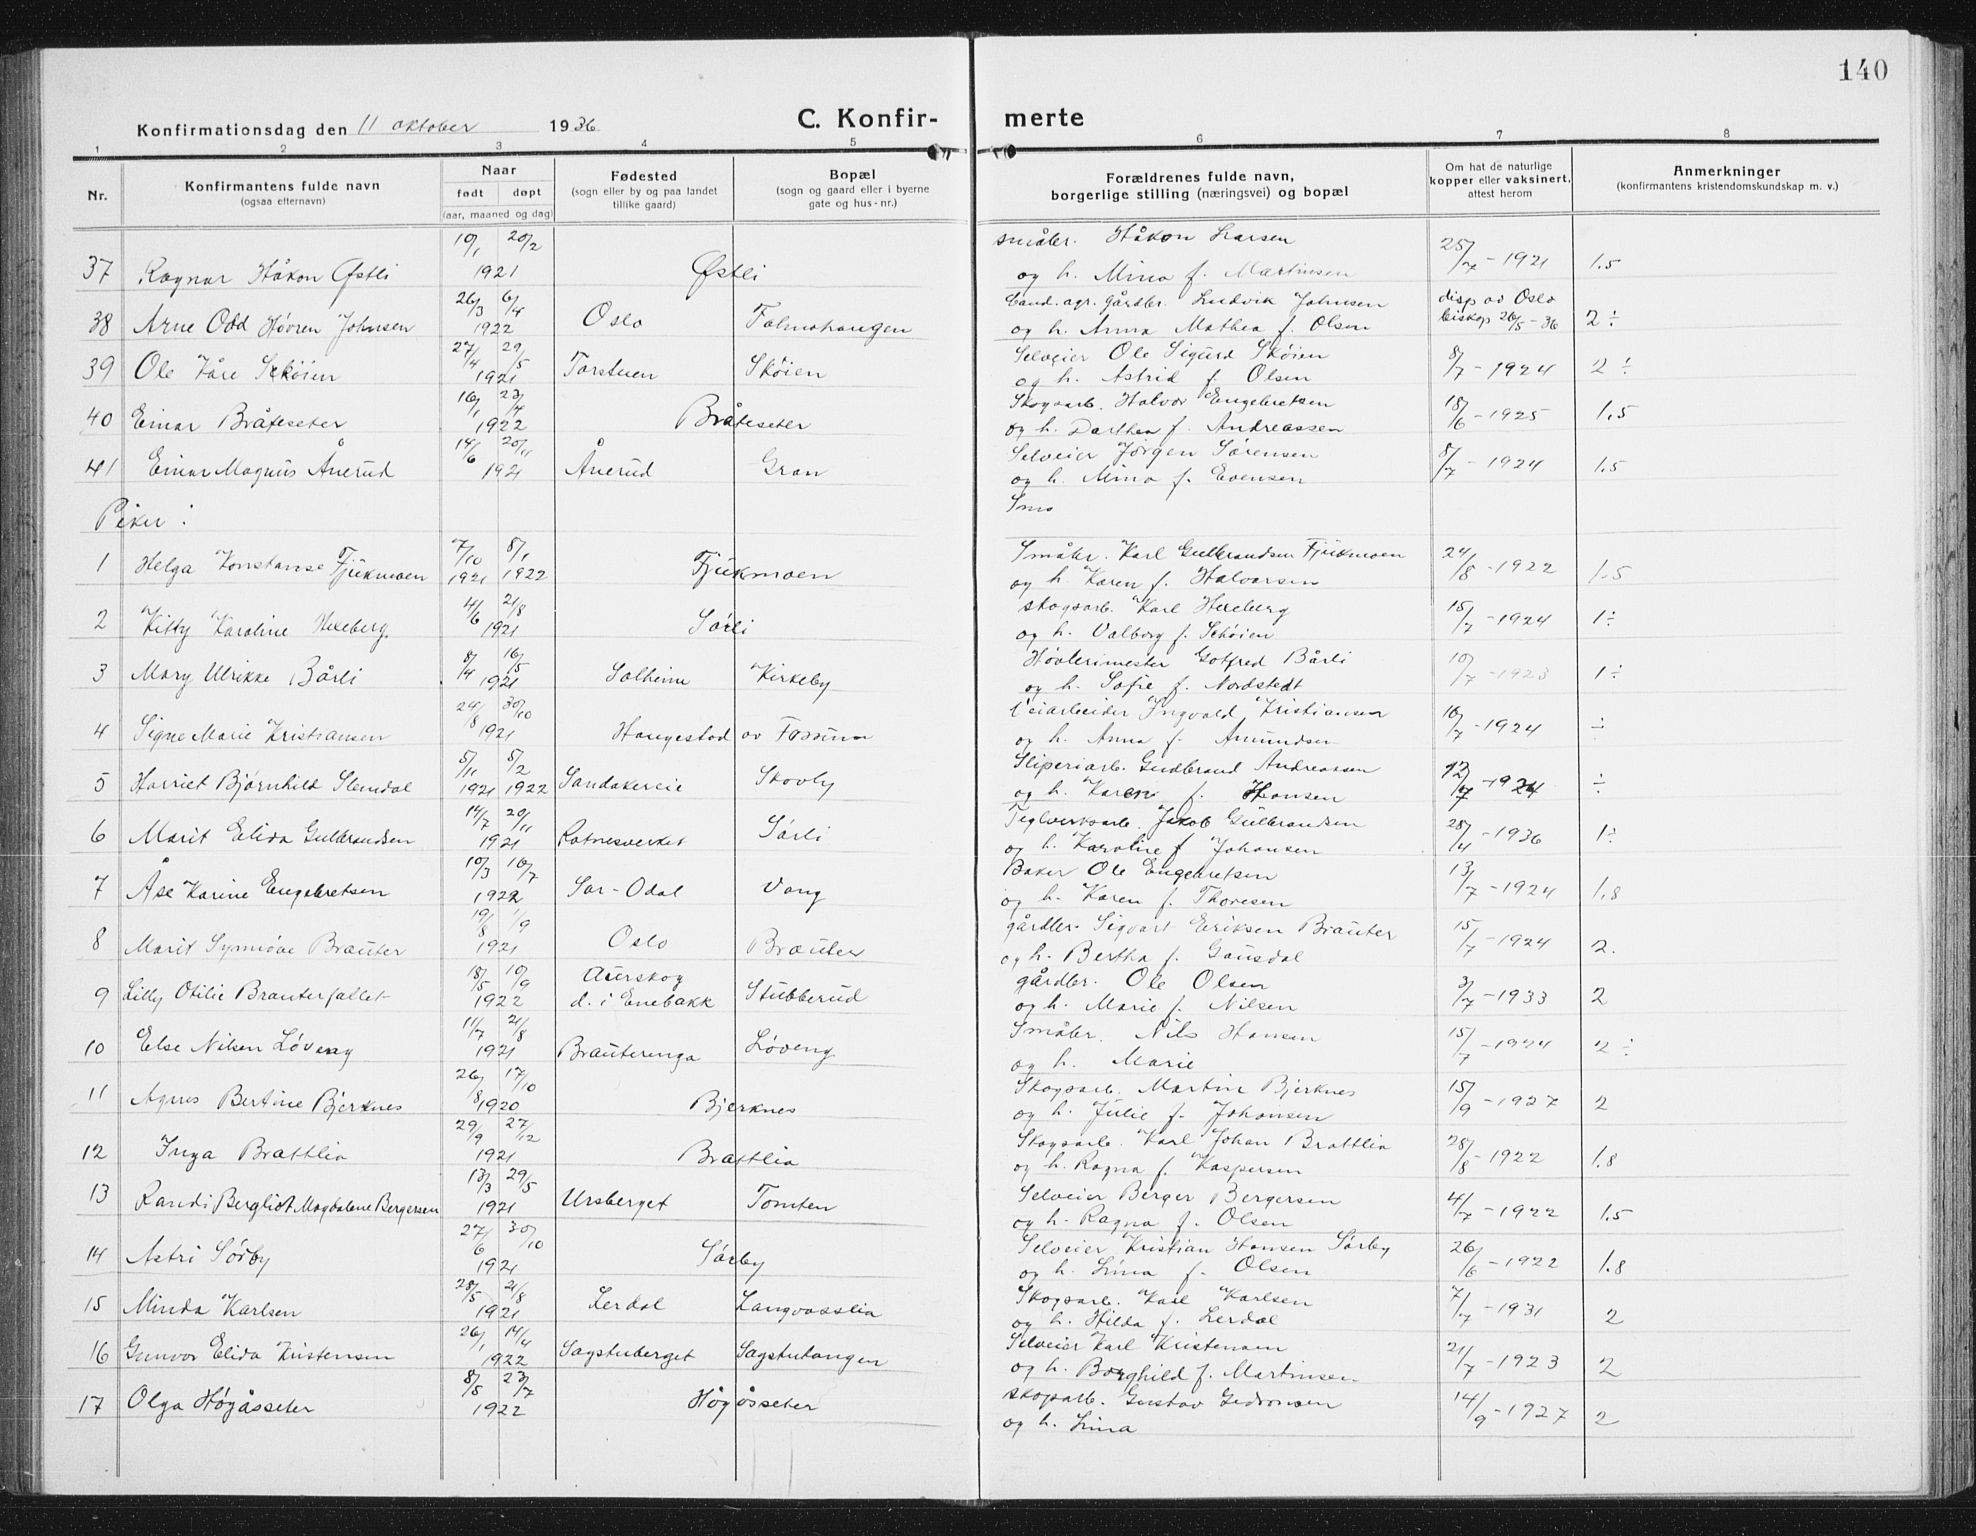 140
Konfirmationsdag den 11 oktober 1936
C. Konfir- merte
1 2 3 4 5 6 7 8
Nr.
Konfirmantens fulde navn
(ogsaa efternavn)
Naar
født døpt
(aar, maaned og dag)
Fødested
(sogn eller by og paa landet
tillike gaard)
Bopæl
(sogn og gaard eller i byerne
gate og hus-nr.)
Forældrenes fulde navn,
borgerlige stilling (næringsvei) og bopæl
Om hat de naturlige
kopper eller vaksinert,
attest herom
Anmerkninger
(konfirmantens kristendomskundskap m. v.)
10/1 20/2 småbr. Håkon Larsen 25/7 - 1921
37 Ragnar Håkon Østli 1921 Østli og h. Mina f. Martinsen 1.5
26/3 6/4 Cand. agr. gårdbr. Ludvik Johnsen disp av Oslo
38 Arne Odd Høvren Johnsen 1922 Oslo Falmohaugen og h. Anna Mathea f. Olsen biskop 26/5 - 36 2 ÷
27/4 29/5 Selveier Ole Sigurd Skøien
39 Ole Kåre Schøien 1921 Torstuen Skøien og h. Astrid f. Olsen 8/7 - 1924 2 ÷
16/1 23/4 Skogsarb. Halvor Engebretsen
40 Einar Bråteseter 1922 Bråteseter og h. Dorthea f. Andreassen 18/6 - 1925 1.5
14/6 20/11 Selveier Jørgen Sørensen
41 Einar Magnus Ånerud 1921 Ånerud Gran og h. Mina f. Evensen 8/7 - 1924 1.5
Piker : Små
7/10 8/1 Småbr. Karl Gulbrandsen Fjukmoen
1 Helga Konstanse Fjukmoen 1921 1922 Fjukmoen og h. Karen f. Halvorsen 24/8 - 1922 1.5
4/6 21/8 skogsarb. Karl Hexeberg
2 Kitty Karoline Hexeberg. 1921 Sørli og h. Valborg f. Schøien 15/7 - 1924 1 ÷
8/4 16/5 Høvlerimester Gotfred Bårli
3 Mary Ulrikke Bårli 1921 Solheim Kirkeby og h. Sofie f. Nordstedt 10/7 - 1923 1 ÷
24/8 30/10 Veiarbeider Ingvald Kristiansen
4 Signe Marie Kristiansen 1921 Haugestad av Fossum og h. Anna f. Amundsen 16/7 - 1924 ÷
5/11 5/2 Sliperiarb. Gudbrand Andreassen
5 Harriet Bjørnhild Slemdal 1921 1922 Sandakereie Skovly og h. Karen f. Hansen 12/7 - 1924 ÷
14/7 20/11 Teglverksarb. Jakob Gulbrandsen
6 Marit Elida Gulbrandsen 1921 Rotnesverket Sørli og h. Karoline f Johansen 28/4 - 1936 1 ÷
10/3 16/7 Baker Ole Engebretsen
7 Åse Karine Engebretsen 1922 Sør-Odal Vang og h. Karen f. Thoresen 13/7 - 1924 1.8
19/8 1/9 gårdbr. Sigvart Eriksen Brauter
8 Marit Synnøve Brauter 1921 Oslo Brauter og h. Bertha f. Gausdal 15/7 - 1924 2.
18/5 10/9 Aurskog gårdbr. Ole Olsen
9 Lilly Otilie Brauterfallet 1922 d. i Enebakk Stubberud og h. Marie f. Nilsen 3/7 - 1933 2
11/7 21/8 Småbr. Nils Hansen
10 Else Nilsen Løveng 1921 Brauterenga Løveng og h. Marie 15/7 - 1924 2 ÷
26/8 17/10 Skogsarb. Martin Bjerknes
11 Agnes Bertine Bjerknes 1920 Bjerknes og h. Julie f. Johansen 15/9 - 1927 2
29/9 27/12 Skogsarb. Karl Johan Brattlia
12 Inga Brattlia 1921 Brattlia og h. Ragna f. Kaspersen 28/8 - 1922 1.8
13/3 29/5 Selveier Berger Bergersen
13 Randi Bergliot Magdalene Bergersen 1921 Ursberget Tomten og h. Ragna f. Olsen 4/7 - 1922 1.5
27/6 30/10 Selveier Kristian Hansen Sørby
14 Astri Sørby 1921 Sørby og h. Lina f. Olsen 26/6 - 1922 1.8
28/5 21/8 Skogsarb. Karl Karlsen
15 Minda Karlsen 1921 Lerdal Langvasslia og h. Hilda f. Lerdal 7/7 - 1931 2
26/1 14/4 Selveier Karl Kristensen
16 Gunvor Elida Kristensen 1922 Sagstuberget Sagstutangen og h. Borghild f. Martinsen 21/7 - 1923 2
8/5 23/7 skogsarb. Gustav Gedionsen
17 Olga Høgåsseter 1922 Høgåsseter og h. Lina 14/9 - 1927 2